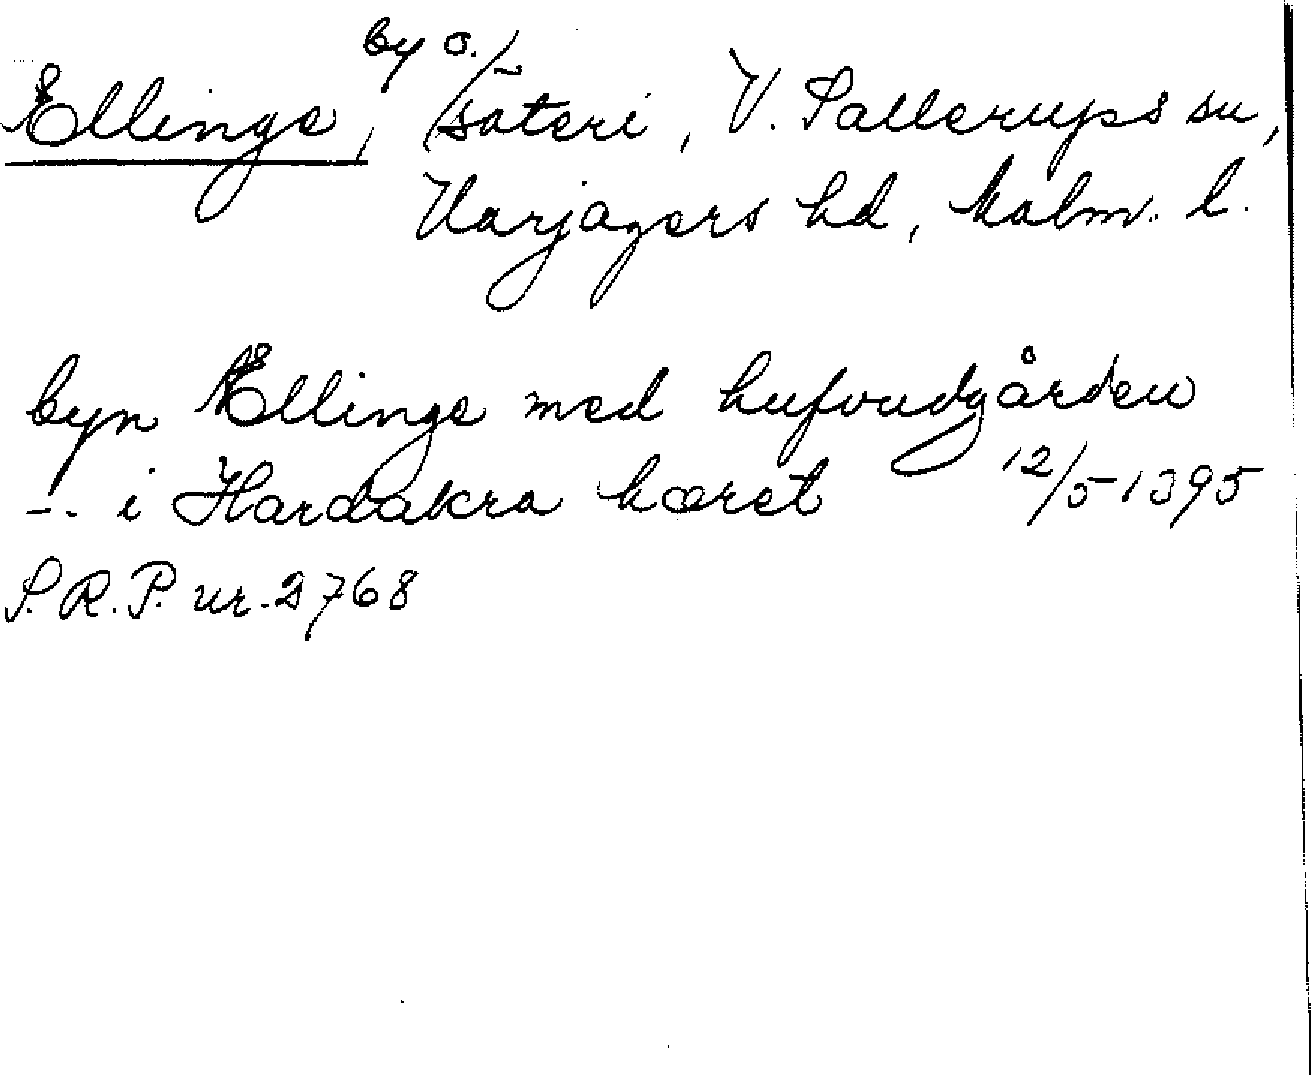 Ellinge, by o. säteri, V. Sallerups sn,
Harjagers hd, Malm. l.
byn Ellinge med hufvudgården
-- i Hardakra hæret 12/5 1395
S.R.P. nr. 2768